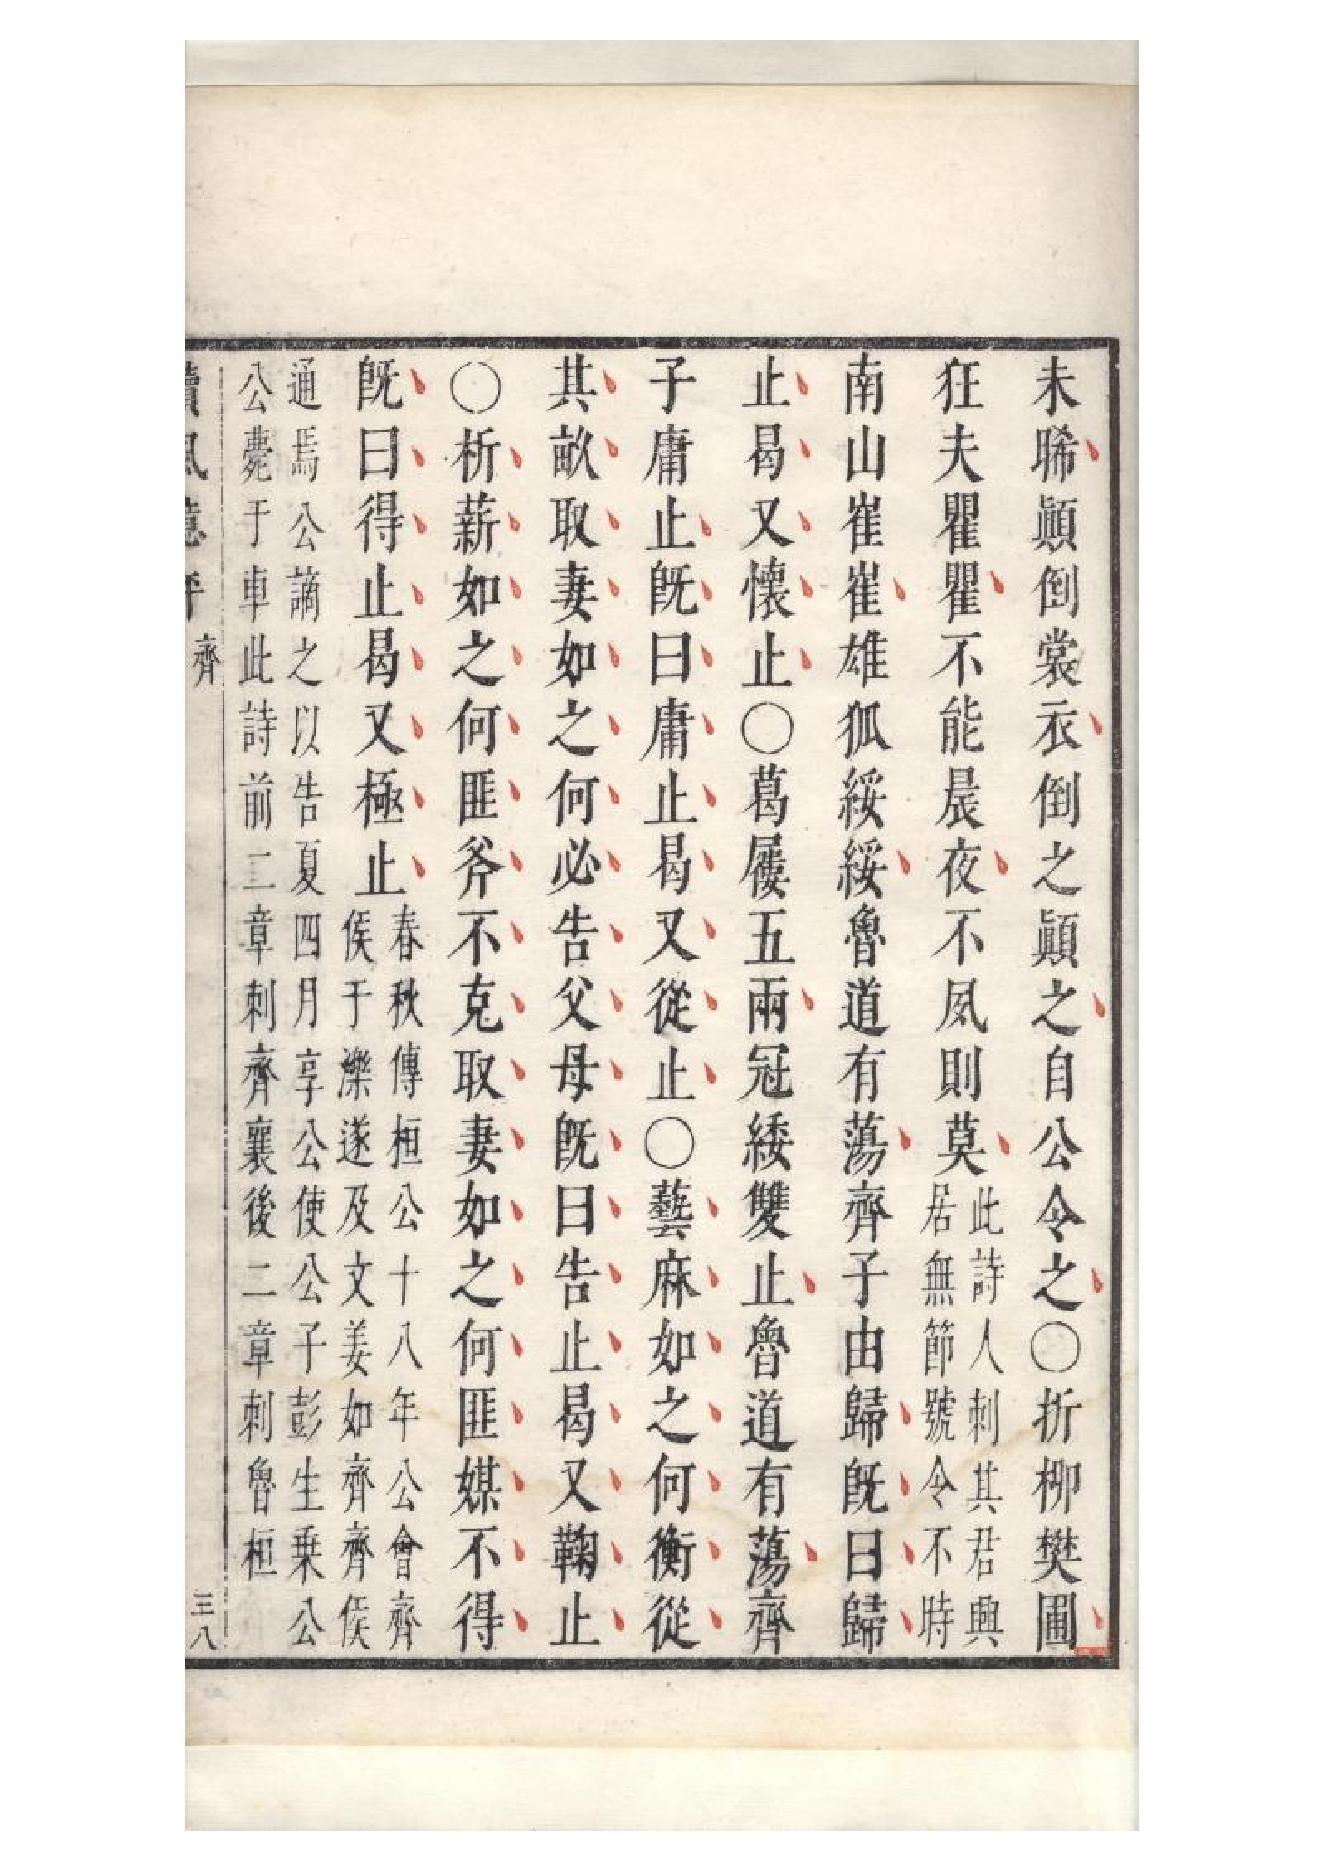 未晞顚倒裳衣倒之顚之自公令之〇折柳樊圃
狂夫瞿瞿不能晨夜不夙則莫
此詩人刺其君興
居無節號令不時
南山崔崔雄狐綏綏魯道有蕩齊子由歸旣曰歸
止曷又懷止〇葛屨五兩冠緌雙止魯道有蕩齊
子庸止旣曰庸止曷又從止〇藝麻如之何衡從
其畝取妻如之何必告父母旣曰告止曷又鞠止
〇析薪如之何匪斧不克取妻如之何匪媒不得
旣曰得止曷又極止
春秋傳桓公十八年公會齊
侯于濼遂及文姜如齊齊侯
通焉公謫之以告夏四月享公使公子彭生乗公
公薨于車此詩前二章刺齊襄後二章刺魯桓
齊
三八